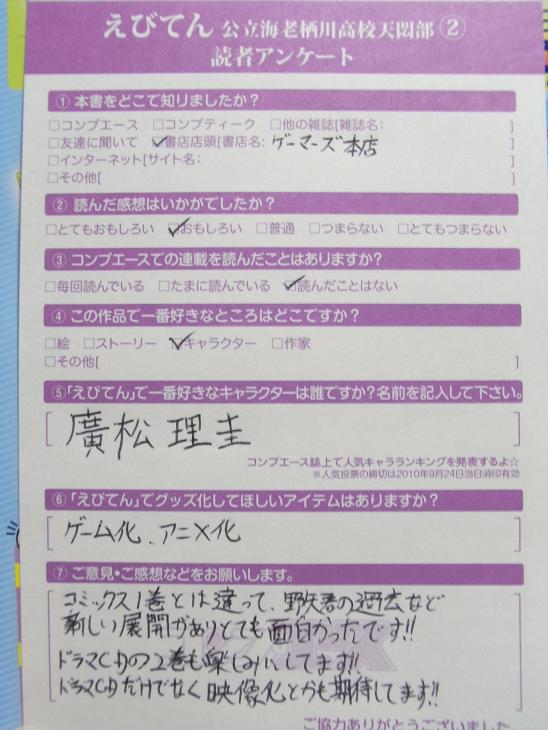 えびてん 公立海老栖川高校天悶部 ②
読者アンケート
① 本書をどこで知りましたか?
□コンプエース □コンプティーク □他の雑誌[雑誌名: ]
□友達に聞いて ☑書店店頭[書店名: ゲーマーズ本店 ]
□インターネット[サイト名: ]
□その他[ ]
② 読んだ感想はいかがでしたか?
□とてもおもしろい ☑おもしろい □普通 □つまらない □とてもつまらない
③ コンプエースでの連載を読んだことはありますか?
□毎回読んでいる □たまに読んでいる ☑読んだことはない
④ この作品で一番好きなところはどこですか?
□絵 □ストーリー ☑キャラクター □作家
□その他[ ]
⑤「えびてん」で一番好きなキャラクターは誰ですか?名前を記入して下さい。
[ 廣松 理圭 ]
コンプエース誌上で人気キャラランキングを発表するよ☆
※人気投票の締切は2010年9月24日当日消印有効
⑥「えびてん」でグッズ化してほしいアイテムはありますか?
[ ゲーム化、アニメ化 ]
⑦ ご意見・ご感想などをお願いします。
コミックス1巻とは違って、野矢君の過去など
新しい展開がありとても面白かったです!!
ドラマCDの2巻も楽しみにしてます!!
ドラマCDだけでなく映像化とかも期待してます!!
ご協力ありがとうございました